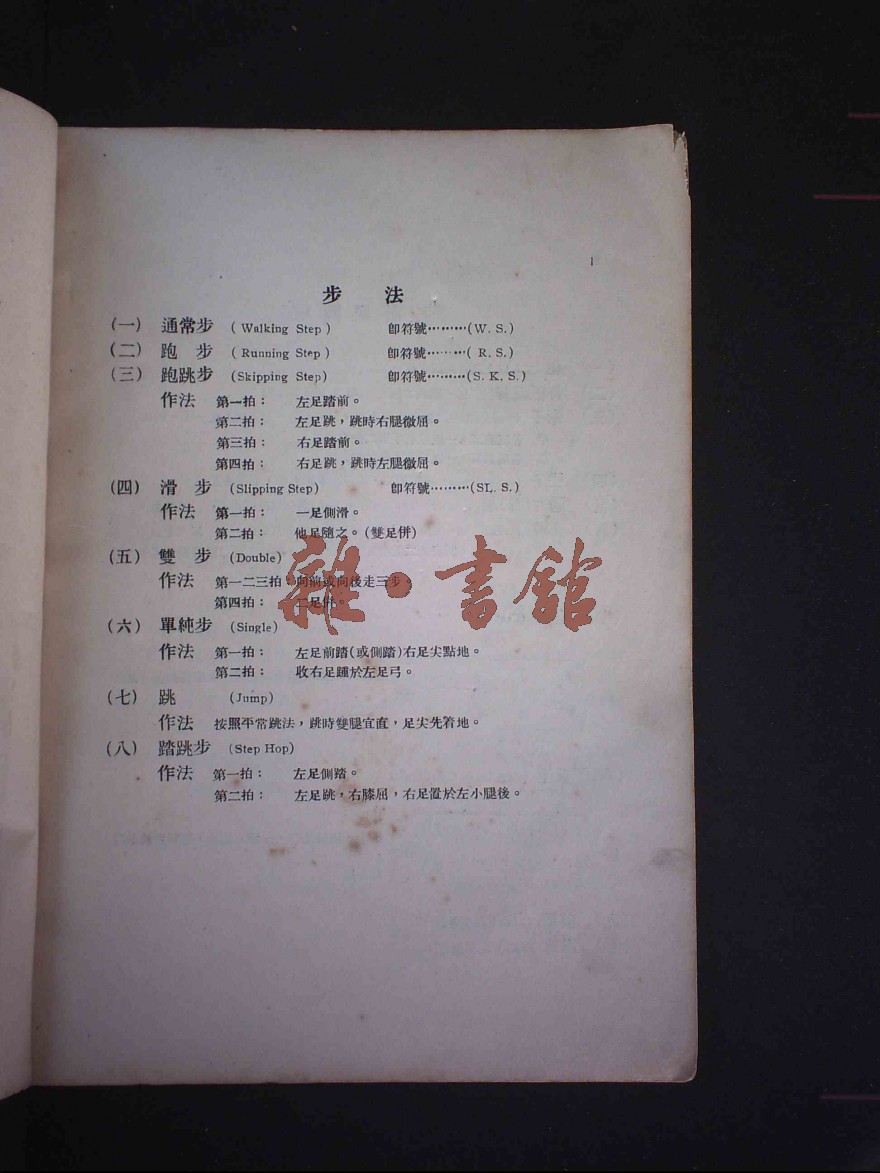 1
步 法
(一) 通常步 (Walking Step) 卽符號………(W. S.)
(二) 跑 步 (Running Step) 卽符號………(R. S.)
(三) 跑跳步 (Skipping Step) 卽符號………(S. K. S.)
作法 第一拍： 左足踏前。
第二拍： 左足跳，跳時右腿微屈。
第三拍： 右足踏前。
第四拍： 右足跳，跳時左腿微屈。
(四) 滑 步 (Slipping Step) 卽符號………(SL. S.)
作法 第一拍： 一足側滑。
第二拍： 他足隨之。(雙足併)
(五) 雙 步 (Double)
作法 第一二三拍：向前或向後走三步。
第四拍： 二足併。
雜·書館
(六) 單純步 (Single)
作法 第一拍： 左足前踏(或側踏)右足尖點地。
第二拍： 收右足踵於左足弓。
(七) 跳 (Jump)
作法 按照平常跳法，跳時雙腿宜直，足尖先着地。
(八) 踏跳步 (Step Hop)
作法 第一拍： 左足側踏。
第二拍： 左足跳，右膝屈，右足置於左小腿後。